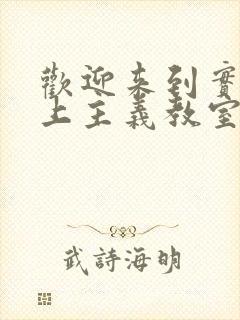 歡迎来到實
上主義教室
武詩海明